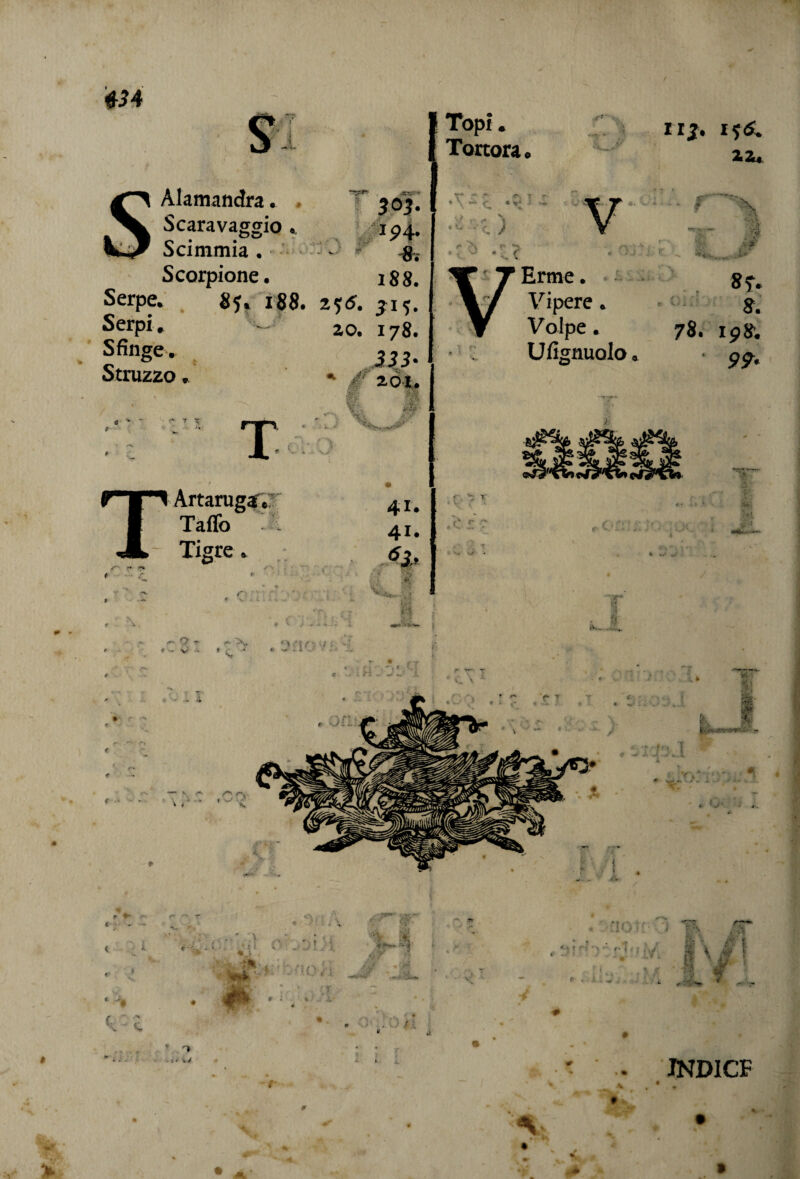 434
S
SAlamandra. 303.
Scaravaggio. 194.
Scimmia. 8.
Scorpione. 188.
Serpe. 85. 188. 256. 315.
Serpi. 20. 178.
Sfinge. 333.
Struzzo. 201.
T
TArtaruga. 41.
Tasso 41.
Tigre. 63.
Topi. 113. 156.
Tortora. 22.
V
VErme. 85.
Vipere. 8.
Volpe. 78. 198.
Usignuolo. 99.
INDICE